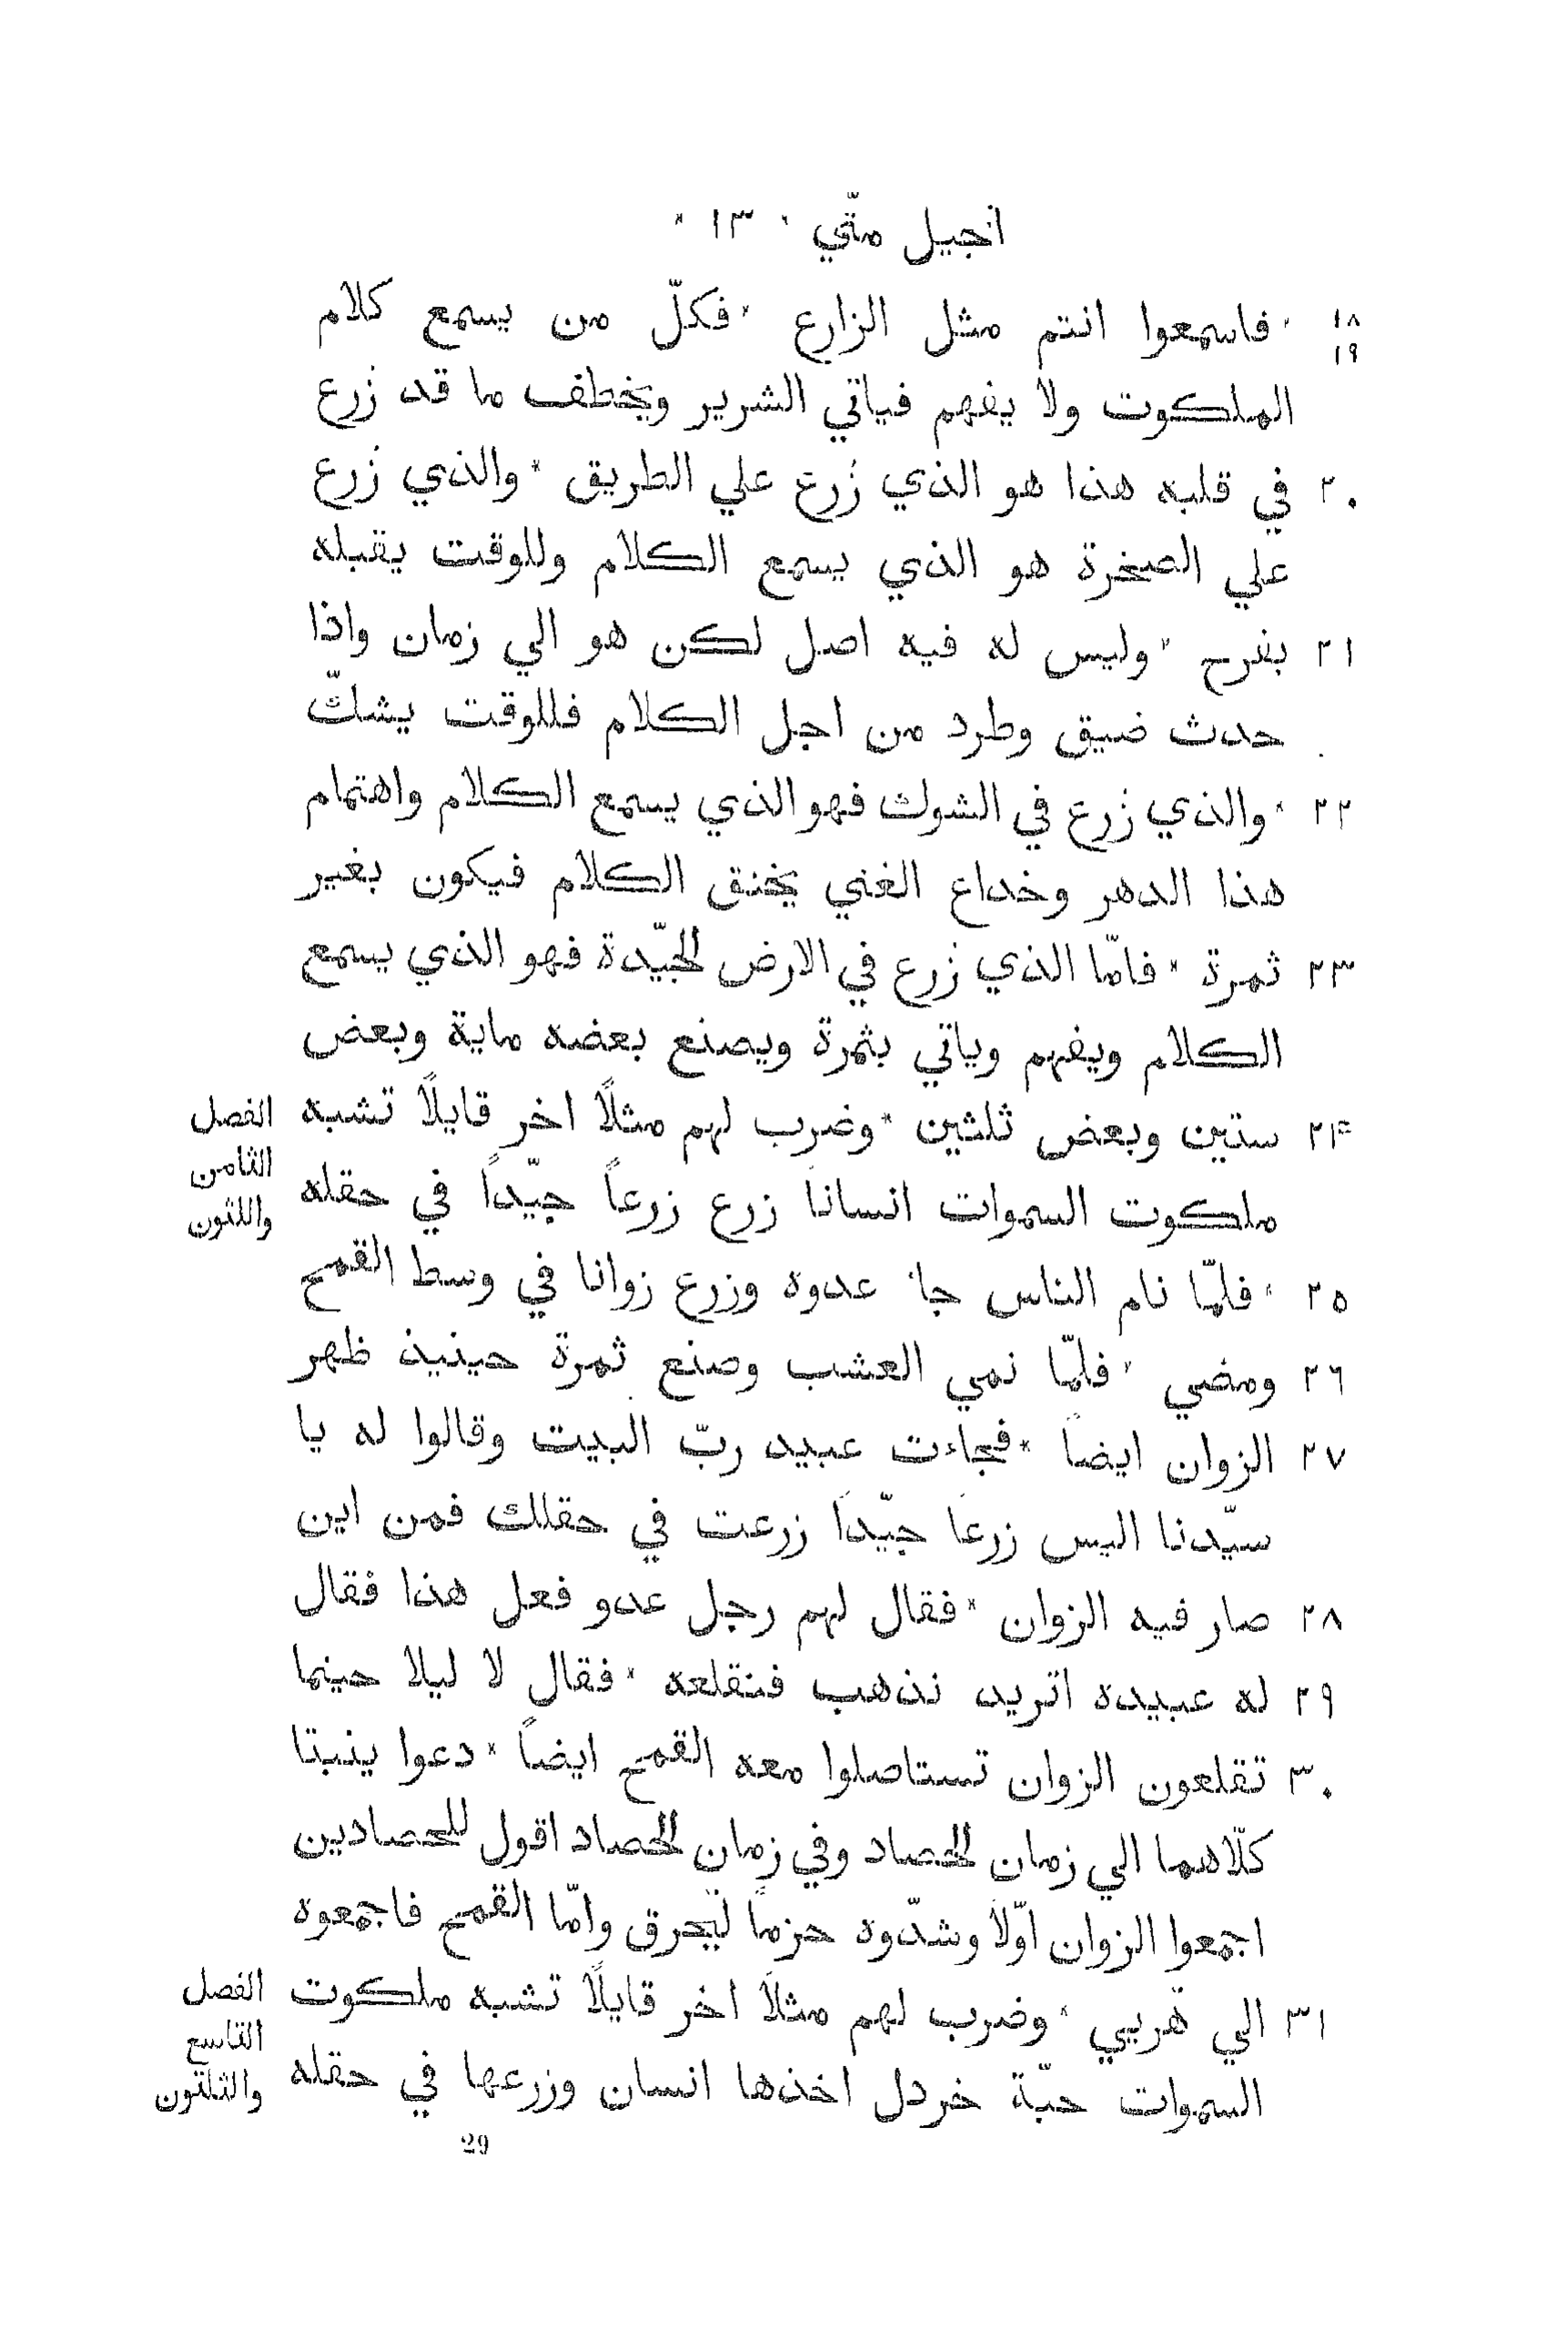 انجيل متّي ١٣ *
١٨ * فاسمعوا انتم مثل الزارع * فكلّ من يسمع كلام
١٩
الملكوت ولا يفهم فياتي الشرير ويخطف ما قد زُرع
٢٠ في قلبه هذا هو الذي زُرع علي الطريق * والذي زُرع
علي الصخرة هو الذي يسمع الكلام وللوقت يقبله
٢١ بفرح * وليس له فيه اصل لكن هو الي زمان واذا
حدث ضيق وطرد من اجل الكلام فللوقت يشكّ
٢٢ * والذي زُرع في الشوك فهو الذي يسمع الكلام واهتمام
هذا الدهر وخداع الغني يخنق الكلام فيكون بغير
٢٣ ثمرة * فامّا الذي زُرع في الارض الجيّدة فهو الذي يسمع
الكلام ويفهم وياتي بثمرة ويصنع بعضه ماية وبعض
٢٤ ستين وبعض ثلثين * وضرب لهم مثلًا اخر قايلًا تشبه
الفصل
الثامن
واللثون
ملكوت السموات انسانًا زرع زرعاً جيّداً في حقله
٢٥ * فلمّا نام الناس جاء عدوه وزرع زوانا في وسط القمح
٢٦ ومضي * فلمّا نمي العشب وصنع ثمرة حينيذ ظهر
٢٧ الزوان ايضاً * فجاءت عبيد ربّ البيت وقالوا له يا
سيّدنا اليس زرعًا جيّدًا زرعت في حقلك فمن اين
٢٨ صار فيه الزوان * فقال لهم رجل عدو فعل هذا فقال
٢٩ له عبيده اتريد نذهب فنقلعه * فقال لا ليلا حينما
٣٠ تقلعون الزوان تستاصلوا معه القمح ايضاً * دعوا ينبتا
كلّاهما الي زمان الحصاد وفي زمان الحصاد اقول للحصادين
اجمعوا الزوان اوّلاً وشدّوه حزماً ليحرق وامّا القمح فاجمعوه
٣١ الي هريي * وضرب لهم مثلًا اخر قايلًا تشبه ملكوت
الفصل
التاسع
والثلثون
السموات حبّة خردل اخذها انسان وزرعها في حقله
29